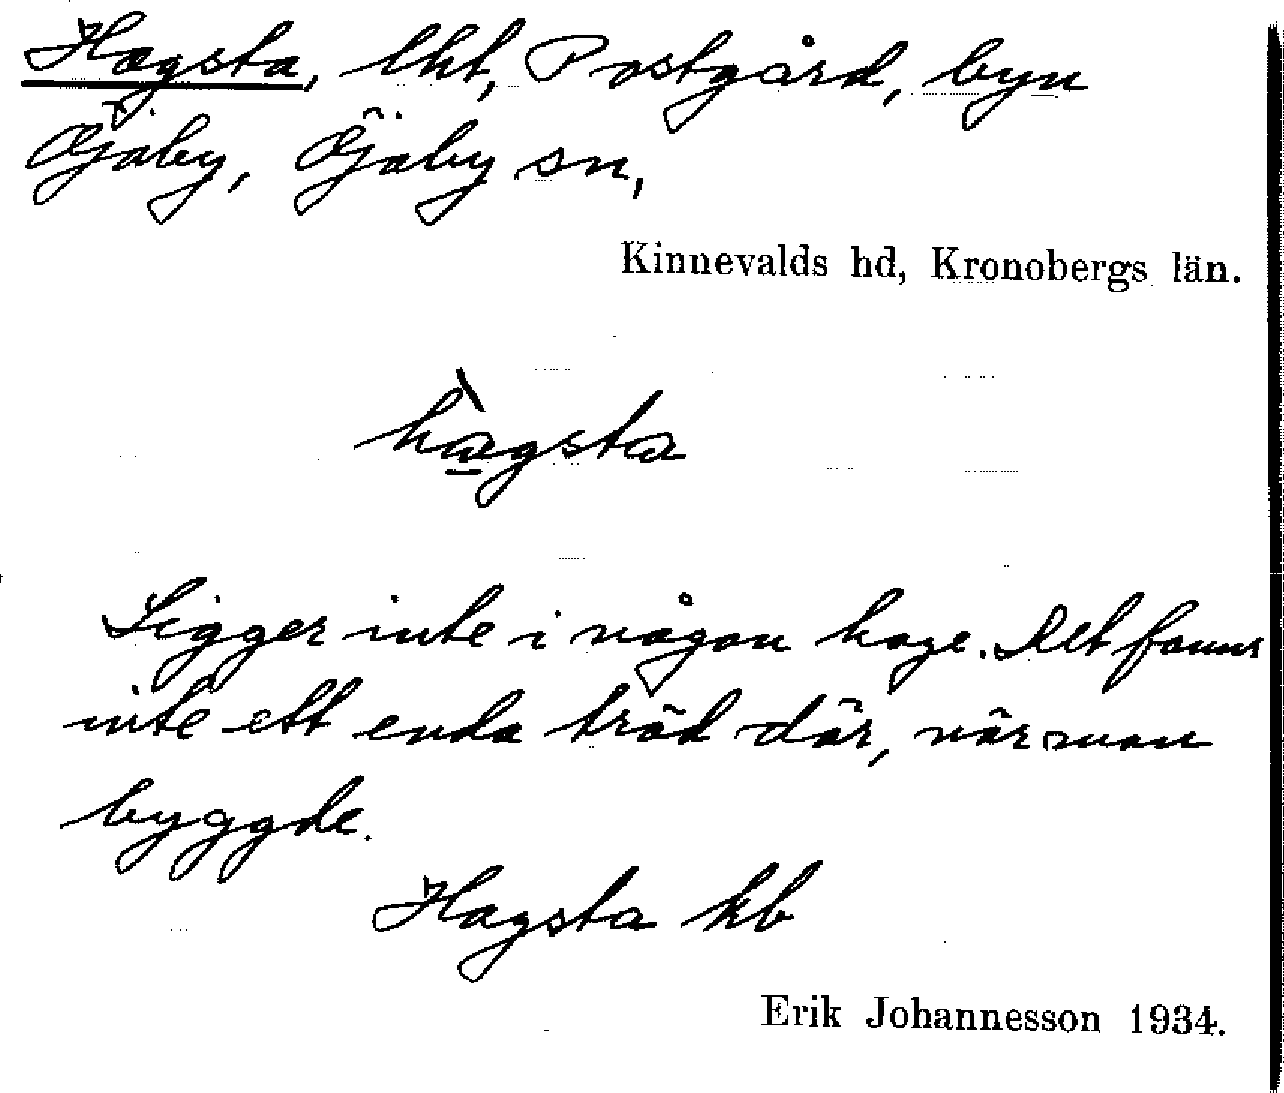 Hagsta, lht, Postgård, byn
Öjaby, Öjaby sn,
Kinnevalds hd, Kronobergs län.
hàgsta
Ligger inte i någon hage. Det fanns
inte ett enda träd där, när man
byggde.
Hagsta kb
Erik Johannesson 1934.